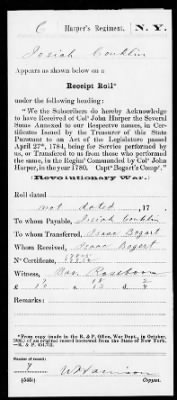 C Harper's Regiment. N. Y.
Josiah Conklin
Appears as shown below on a
Receipt Roll*
under the following heading:
"We the Subscribers do hereby Acknowledge
to have Received of Colº John Harper the Several
Sums Annexed to our Respective names, in
Certificates Issued by the Treasurer of this State
Pursuant to an Act of the Legislature passed
April 27th, 1784, being for Service performed by
us, or Transferred to us from those who performed
the same, in the Regimt Commanded by Colº John
Harper, in the year 1780. Captn Bogart's Compy."
(Revolutionary War.)
Roll dated
not dated, 17
To whom Payable, Josiah Conklin
To whom Transferred, Isaac Bogart
Whom Received, Isaac Bogert
Nº Certificate,
Witness, Bar. Roseboom
£ s d
Remarks:
*From copy (made in the R. & P. Office, War Dept., in October,
of an original record borrowed from the State of New York.
—R. & P.
Number of record:
7
(545) Copyist.